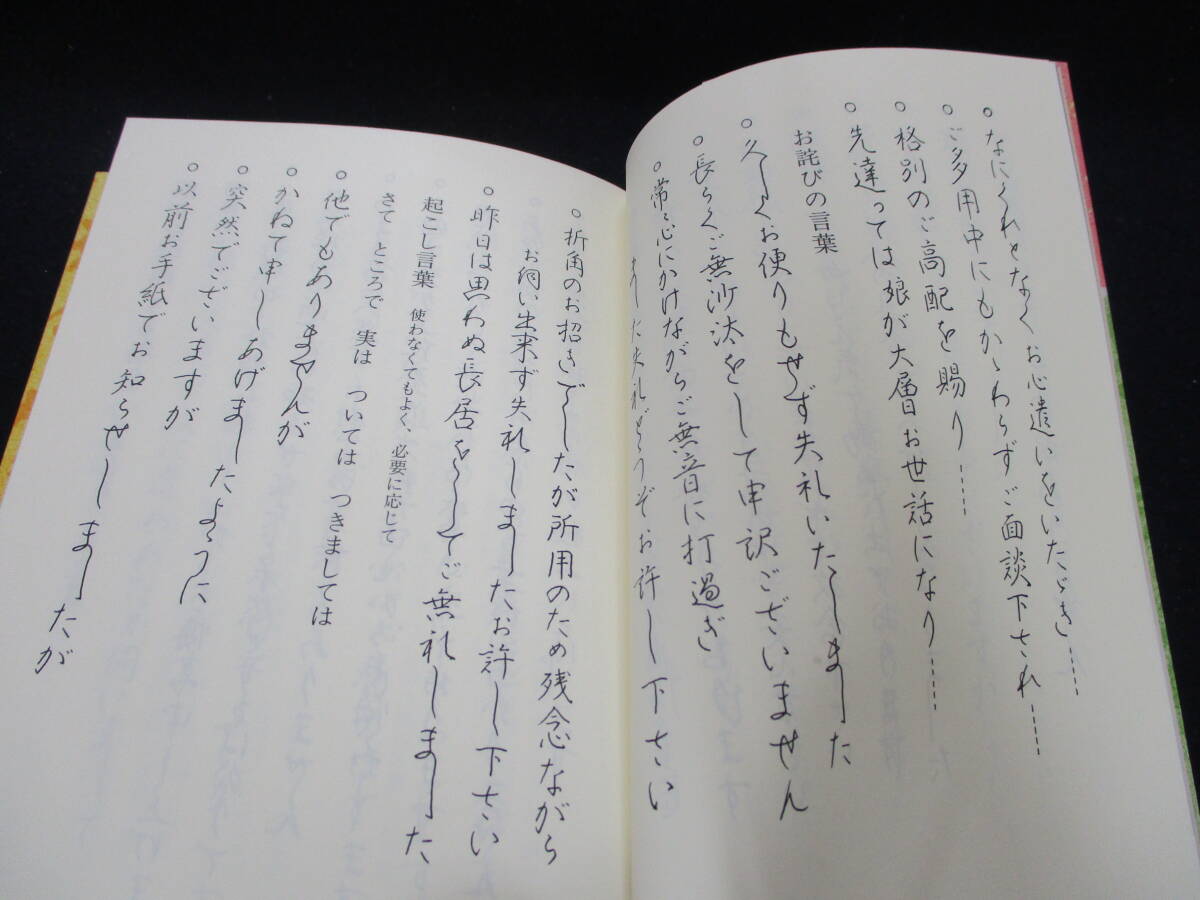 ○なにくれとなくお心遣いをいたゞき……
○ご多用中にもかゝわらずご面談下され……
○格別のご高配を賜り……
○先達っては娘が大層お世話になり……
お詫びの言葉
○久しくお便りもせず失礼いたしました
○長らくご無沙汰をして申訳ございません
○常々心にかけながらご無音に打過ぎ
ました失礼どうぞお許し下さい
○折角のお招きでしたが所用のため残念ながら
お伺い出来ず失礼しましたお許し下さい
○昨日は思わぬ長居をしてご無礼しました
起こし言葉 使わなくてもよく、必要に応じて
さて ところで 実は ついては つきましては
○他でもありませんが
○かねて申しあげましたように
○突然でございますが
○以前お手紙でお知らせしましたが